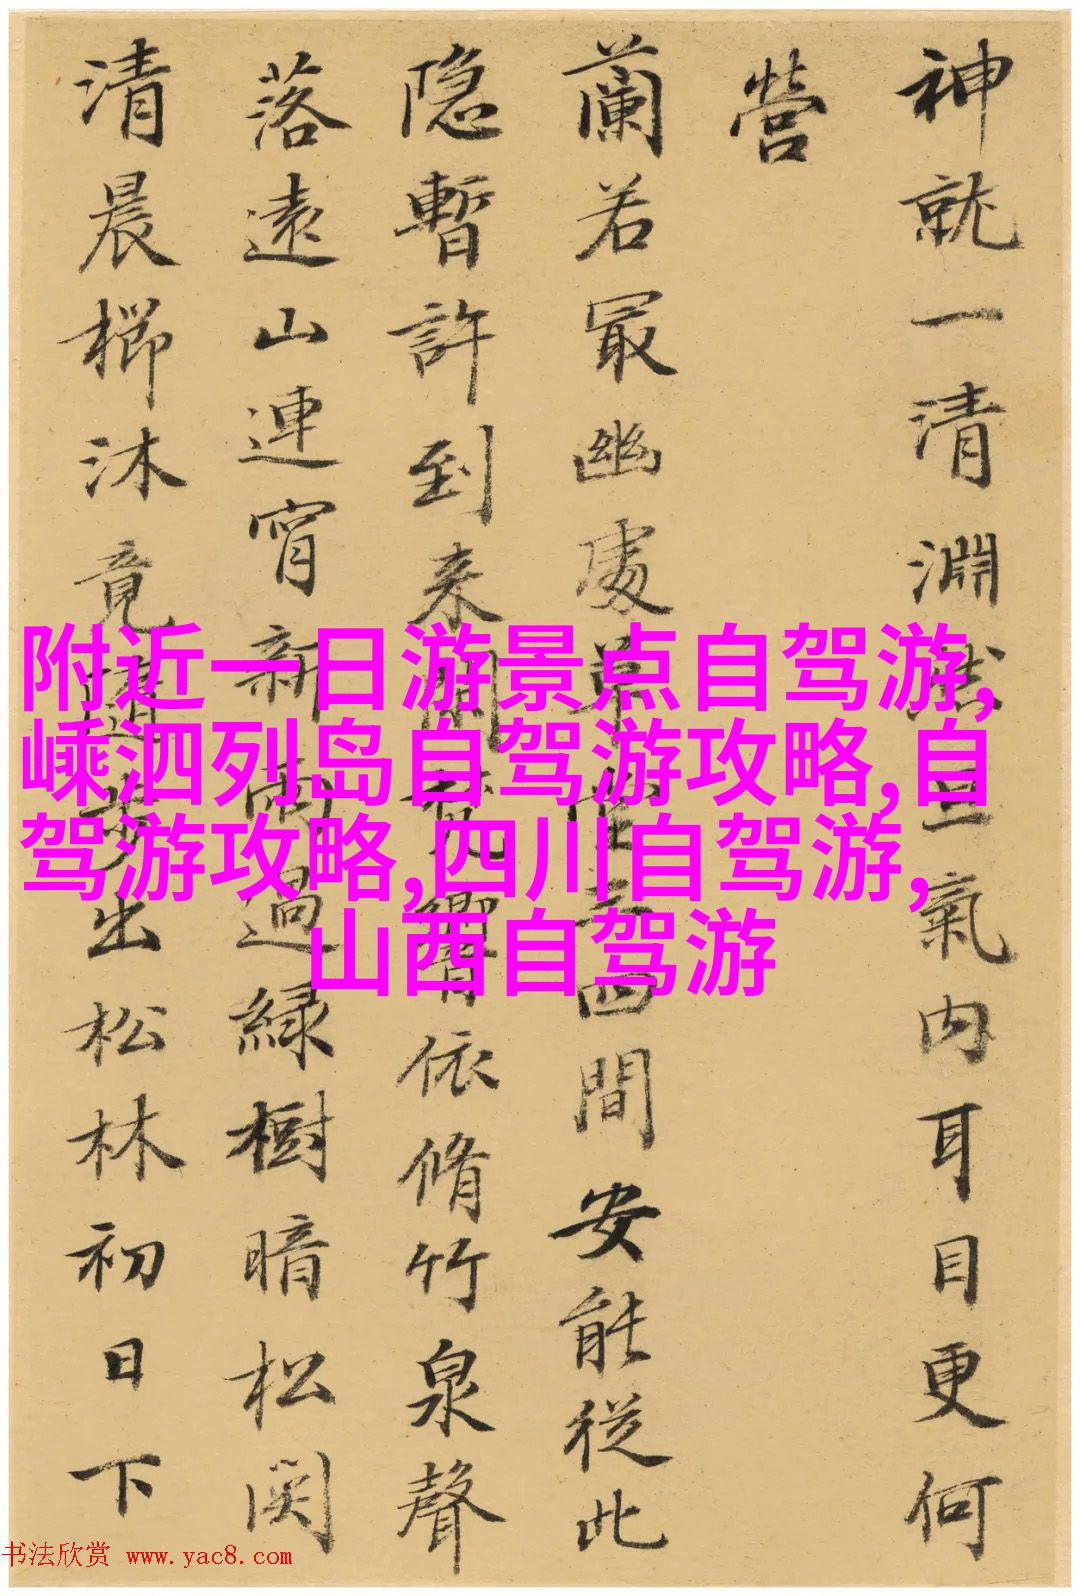 神就一清淵然旦氣内耳目更何
營
蘭若冣幽處四間安能從此
隐暫許到来開響依脩竹泉聲
落遠山連宵新雨過緑樹暗松関
清晨櫛沐竟步出松林初日下
附近一日游景点自驾游,
嵊泗列岛自驾游攻略,自
驾游攻略,四川自驾游,
山西自驾游
书法欣赏 www.yac8.com